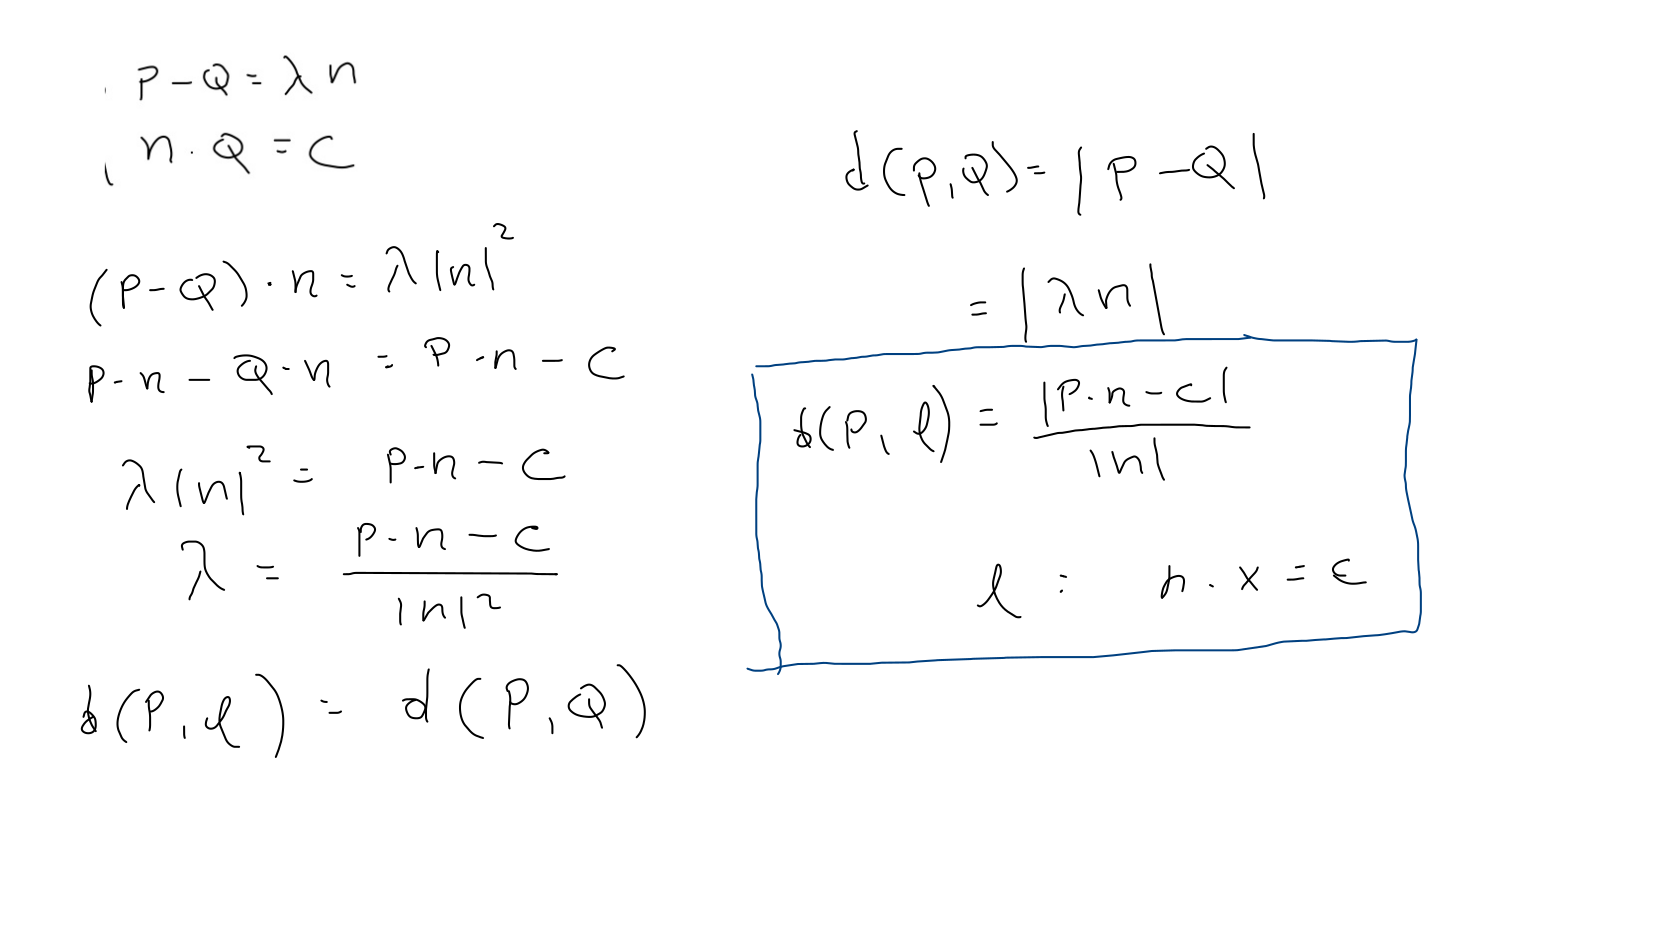 P - Q = λ n
n · Q = C
(P-Q) · n = λ |n|²
P · n - Q · n = P · n - C
λ |n|² = P · n - C
λ = P · n - C / |n|²
d(P, ℓ) = d(P, Q)
d(P, Q) = |P - Q|
= |λ n|
d(P, ℓ) = |P · n - C| / |n|
ℓ : n · x = C